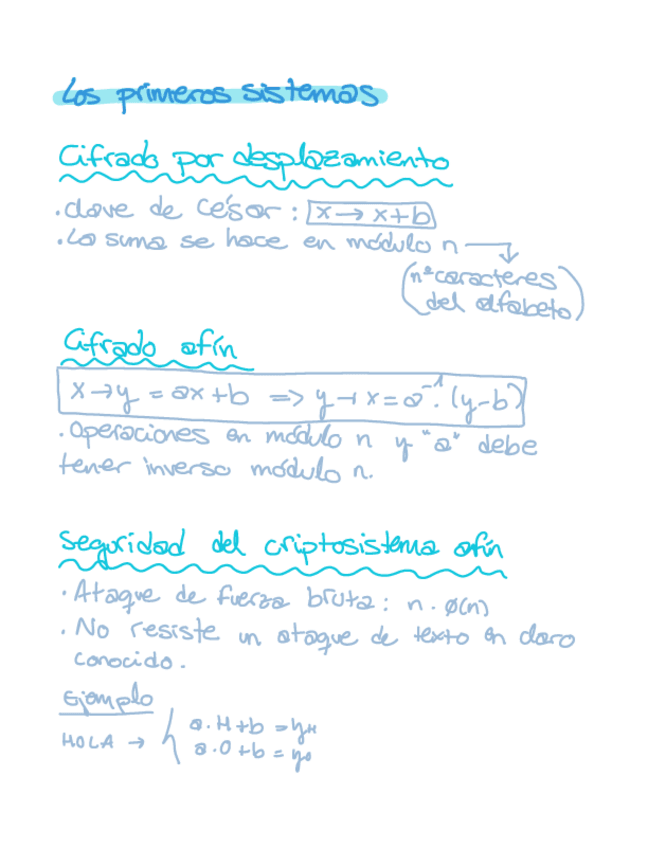 Los primeros sistemas
Cifrado por desplazamiento
. clave de César : x → x+b
. La suma se hace en módulo n
(nº caracteres
del alfabeto)
Cifrado afín
x → y = ax + b => y → x = a⁻¹. (y-b)
. Operaciones en módulo n y "a" debe
tener inverso módulo n.
Seguridad del criptosistema afín
. Ataque de fuerza bruta : n . ø(n)
. No resiste un ataque de texto en claro
conocido.
Ejemplo
HOLA → { a.H + b = yH
a.O + b = yo